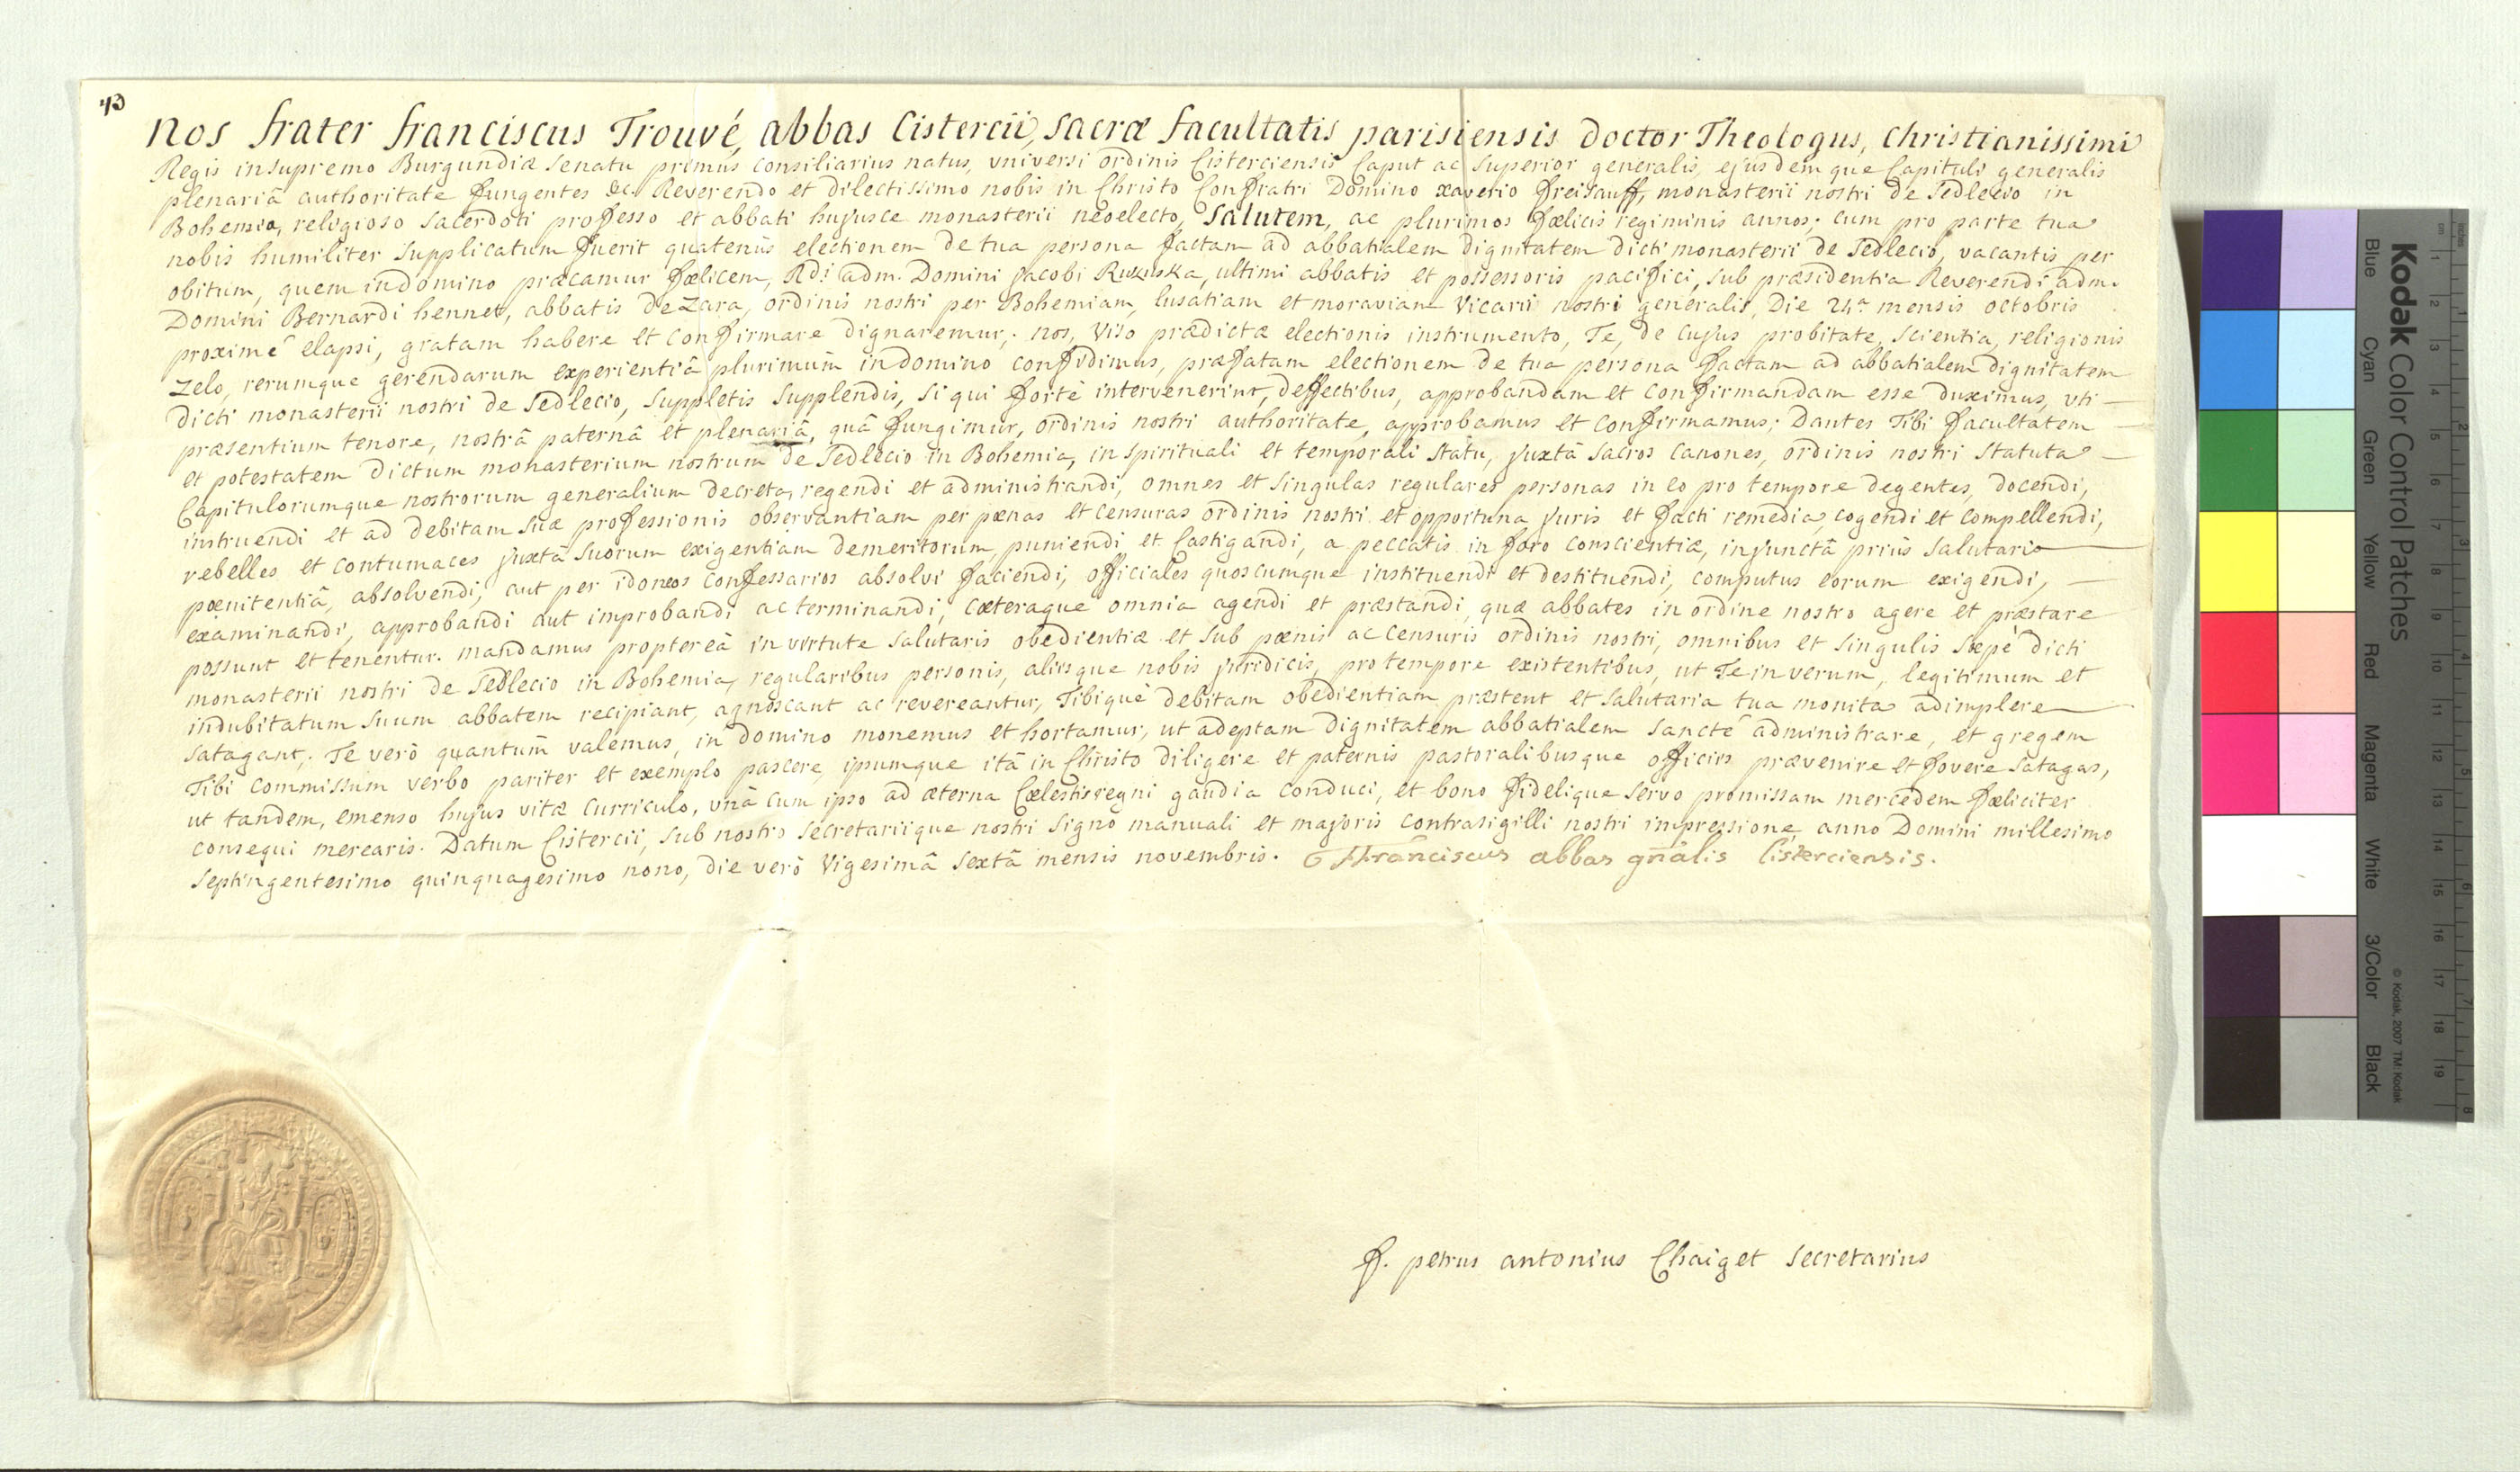 nos frater franciscus Trouvé, abbas Cistercii, sacræ facultatis parisiensis doctor Theologus, Christianissimi
Regis in supremo Burgundiæ senatu primus consiliarius natus, vniversi ordinis Cisterciensis Caput ac superior generalis, ejusdemque Capituli generalis
plenariâ authoritate fungentes &c. Reverendo et dilectissimo nobis in Christo Confratri Domino xaverio freisauff, monasterii nostri de Sedlecio in
Bohemia, religioso sacerdoti professo et abbati hujusce monasterii neoelecto, Salutem, ac plurimos fœlicis regiminis annos; cum pro parte tua
nobis humiliter supplicatum fuerit quatenùs electionem de tua persona factam ad abbatialem dignitatem dicti monasterii de Sedlecio, vacantis per
obitum, quem in domino præcamur fœlicem, Rdi. adm. Domini jacobi Ruziska, ultimi abbatis et possessoris pacifici, sub præsidentia Reverendi adm.
Domini Bernardi hennet, abbatis de Zara, ordinis nostri per Bohemiam, lusatiam et moraviam Vicarii nostri generalis, Die 24ª mensis octobris
proximè elapsi, gratam habere et confirmare dignaremur; nos, viso prædictæ electionis instrumento, Te, de cujus probitate, scientia, religionis
zelo, rerumque gerendarum experientiâ plurimùm in domino confidimus, præfatam electionem de tua persona factam ad abbatialem dignitatem
dicti monasterii nostri de Sedlecio, suppletis supplendis, si qui fortè intervenerint, deffectibus, approbandam et confirmandam esse duximus, vti
præsentium tenore, nostrâ paternâ et plenariâ, quâ fungimur, ordinis nostri authoritate, approbamus et confirmamus; Dantes Tibi facultatem
et potestatem dictum monasterium nostrum de Sedlecio in Bohemia, in spirituali et temporali statu, juxtà sacros canones, ordinis nostri statuta
Capitulorumque nostrorum generalium decreta, regendi et administrandi, omnes et singulas regulares personas in eo pro tempore degentes, docendi,
instruendi et ad debitam suæ professionis observantiam per pœnas et censuras ordinis nostri et opportuna juris et facti remedia, cogendi et compellendi,
rebelles et contumaces juxtà suorum exigentiam demeritorum, puniendi et Castigandi, a peccatis in foro conscientiæ, injunctâ priùs salutari
pœnitentiâ, absolvendi, aut per idoneos confessarios absolvi faciendi, officiales quoscumque instituendi et destituendi, computus eorum exigendi,
examinandi, approbandi aut improbandi ac terminandi, cœteraque omnia agendi et præstandi, quæ abbates in ordine nostro agere et præstare
possunt et tenentur. mandamus proptereà in virtute salutaris obedientiæ et sub pœnis ac censuris ordinis nostri, omnibus et singulis sœpè dicti
monasterii nostri de Sedlecio in Bohemia, regularibus personis, aliisque nobis juridicis, pro tempore existentibus, ut Te in verum, legitimum et
indubitatum suum abbatem recipiant, agnoscant ac revereantur, Tibique debitam obedientiam præstent et salutaria tua monita adimplere
satagant; Te verò quantùm valemus, in domino monemus et hortamur, ut adeptam dignitatem abbatialem sanctè administrare, et gregem
Tibi Commissum verbo pariter et exemplo pascere, ipsumque itâ in Christo diligere et paternis pastoralibusque officiis prævenire et fovere satagas,
ut tandem, emenso hujus vitæ Curriculo, vnâ cum ipso ad æterna Cœlestis regni gaudia conduci, et bono fidelique servo promissam mercedem fœliciter
consequi merearis. Datum Cistercii, sub nostro secretariique nostri signo manuali et majoris contrasigilli nostri impressione, anno Domini millesimo
septingentesimo quinquagesimo nono, die verò Vigesimâ sextâ mensis novembris. franciscus abbas gñalis Cisterciensis.
f. petrus antonius Chaiget secretarius
Kodak Color Control Patches
Blue Cyan Green Yellow Red Magenta White 3/Color Black
© Kodak, 2007 TM: Kodak
inches 1 2 3 4 5 6 7 8
cm 1 2 3 4 5 6 7 8 9 10 11 12 13 14 15 16 17 18 19